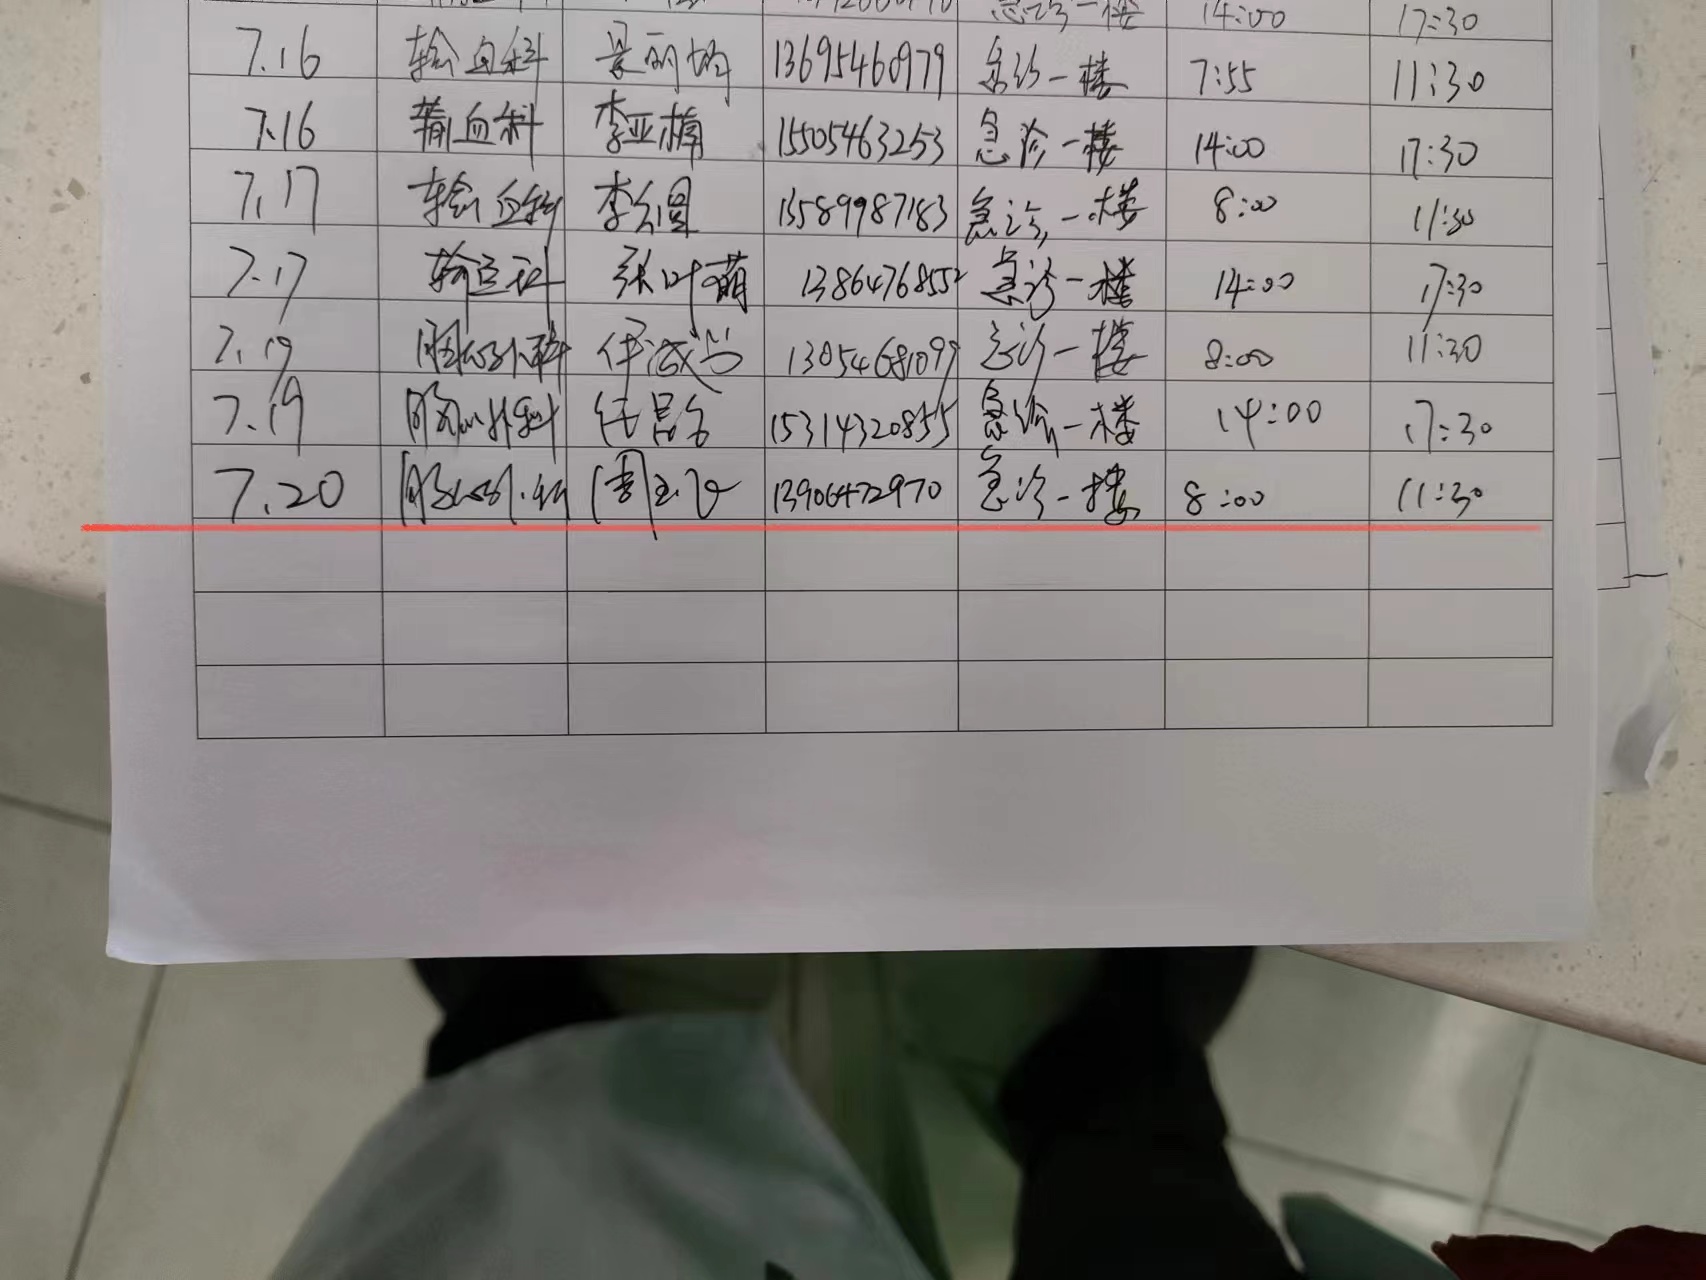 急诊一楼 14:00 17:30
7.16 输血科 13695460979 急诊一楼 7:55 11:30
7.16 输血科 李亚楠 15505463253 急诊一楼 14:00 17:30
7.17 输血科 李 13589987183 急诊一楼 8:00 11:30
7.17 输血科 张叶萌 13864768552 急诊一楼 14:00 17:30
7.19 胸心外科 13054681099 急诊一楼 8:00 11:30
7.19 胸心外科 任昌 15314320855 急诊一楼 14:00 17:30
7.20 胸心外科 13906472970 急诊一楼 8:00 11:30